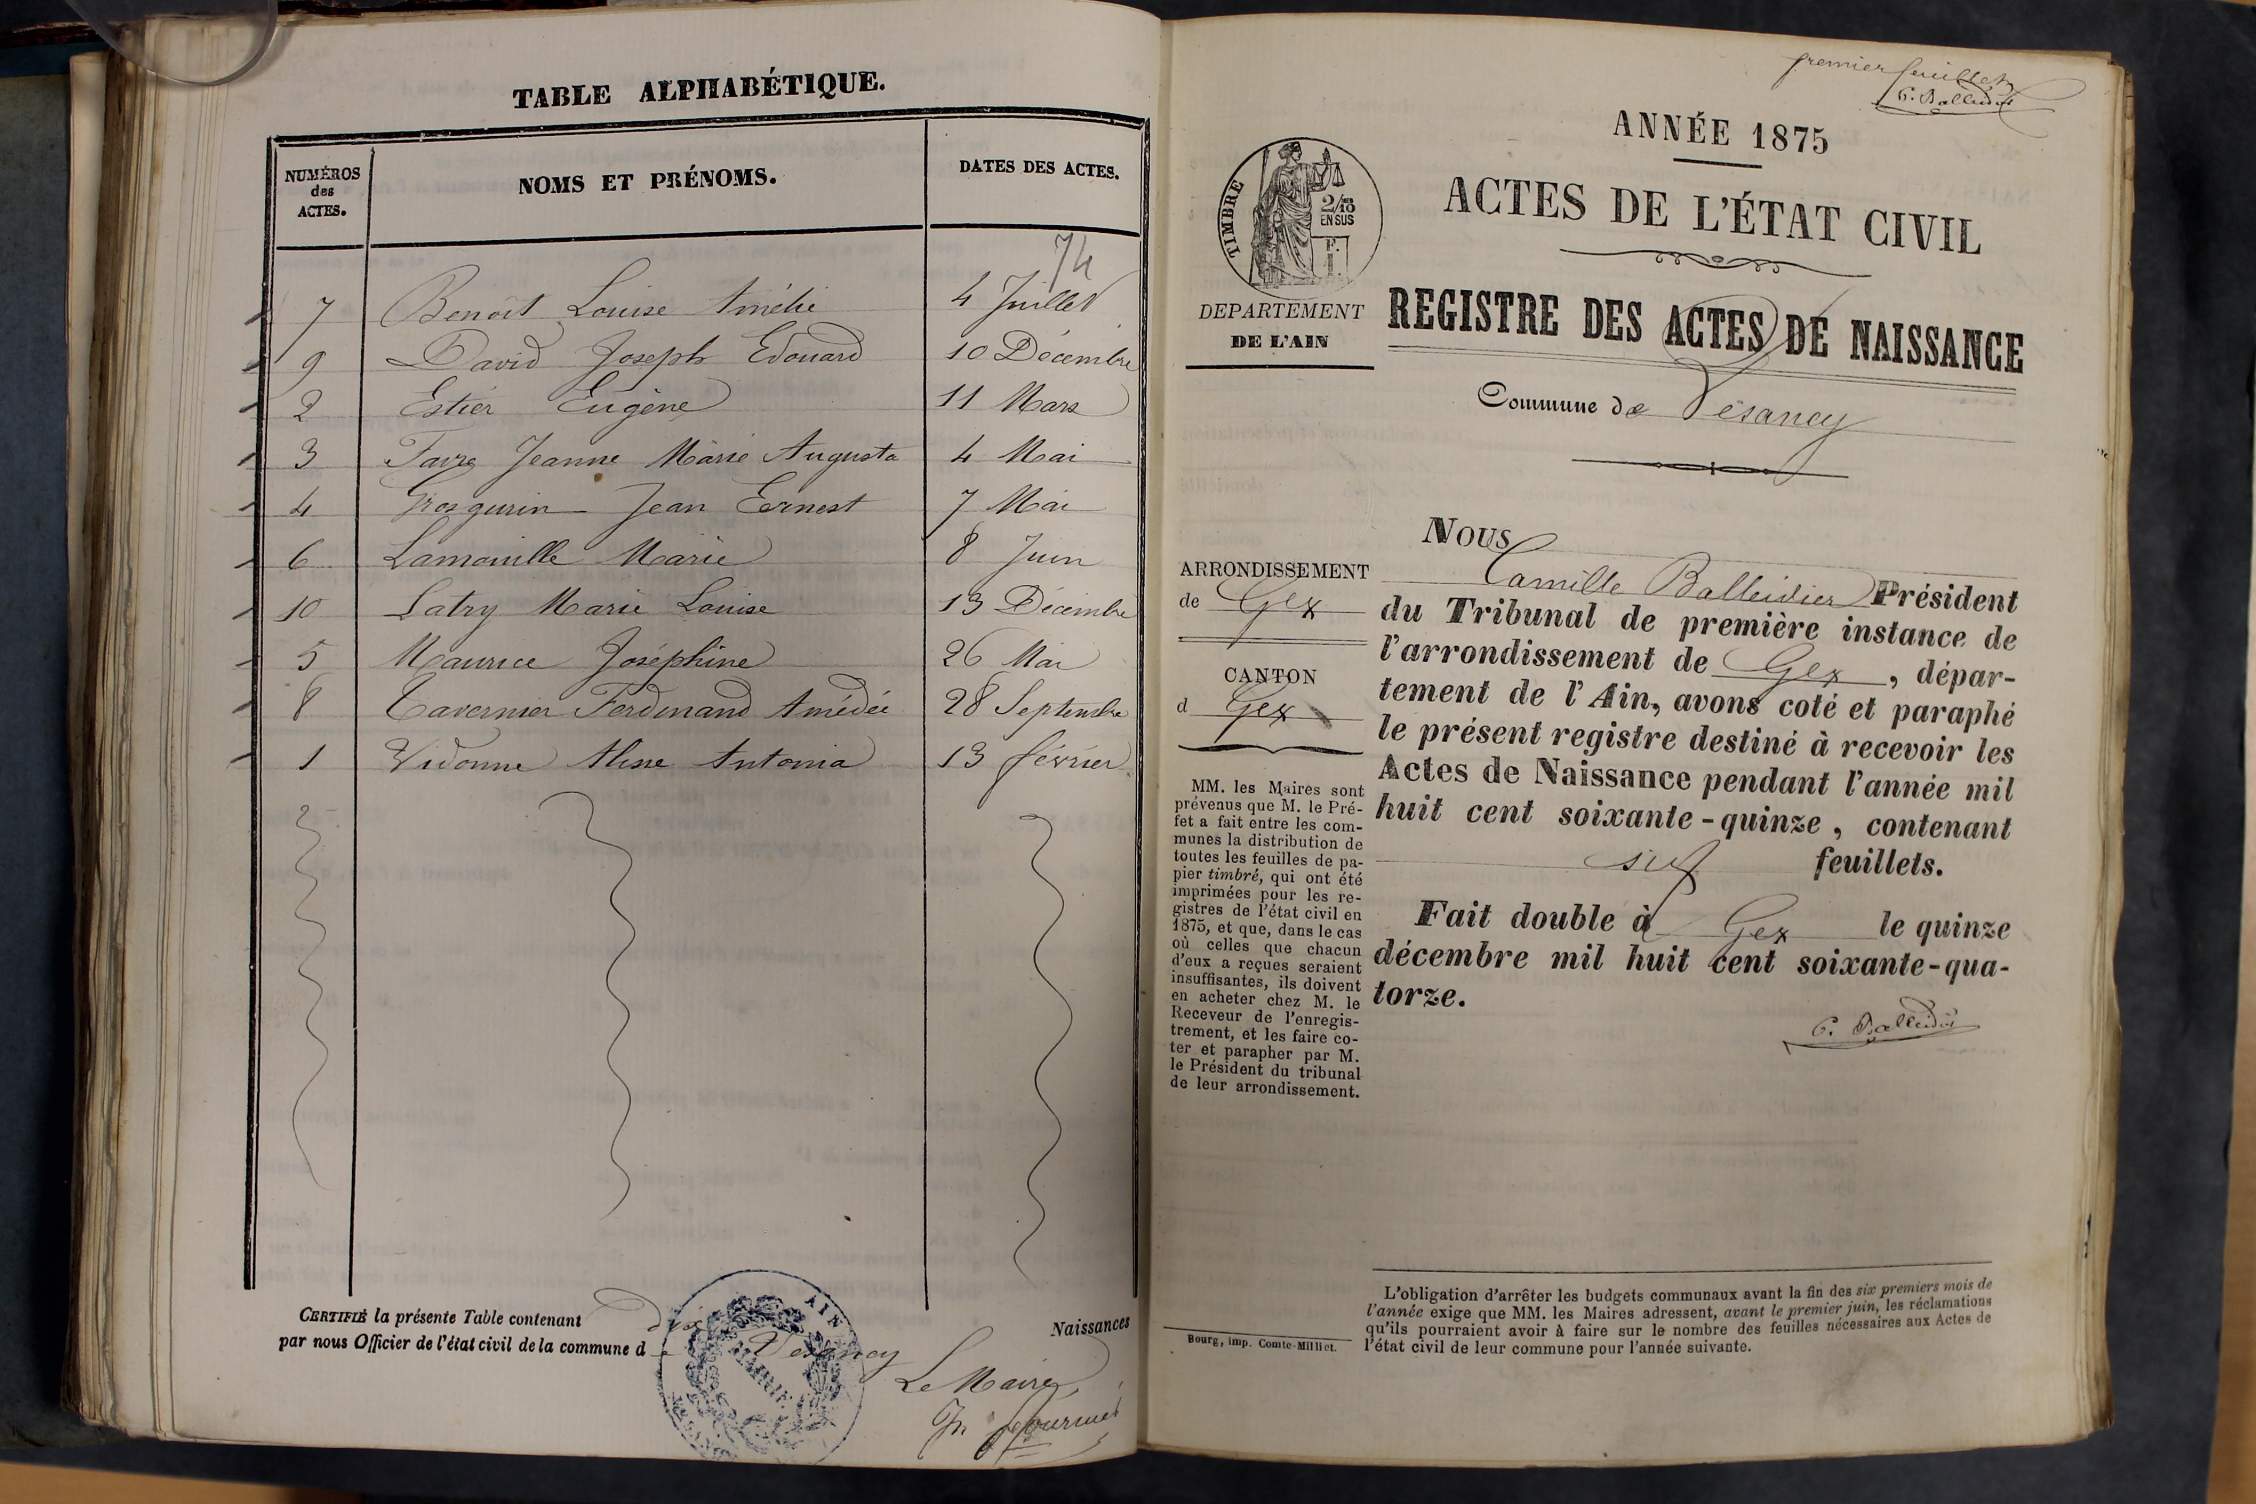 TABLE ALPHABÉTIQUE.
NUMÉROS
des
ACTES.
NOMS ET PRÉNOMS.
DATES DES ACTES.
74
7 Benoît Louise Amélie 4 Juillet
9 David Joseph Edouard 10 Décembre
2 Estier Eugène 11 Mars
3 Favre Jeanne Marie Augusta 4 Mai
4 Grosgurin Jean Ernest 7 Mai
6 Lamouille Marie 8 Juin
10 Latry Marie Louise 13 Décembre
5 Maurice Joséphine 26 Mai
8 Tavernier Ferdinand Amédée 28 Septembre
1 Vidonne Antonia 13 février
CERTIFIÉ la présente Table contenant dix Naissances
par nous Officier de l'état civil de la commune de Vesancy
AIN
MAIRIE
Le Maire
premier feuillet
C. Balleidier
ANNÉE 1875
ACTES DE L'ÉTAT CIVIL
TIMBRE
2/10
EN SUS
DEPARTEMENT
DE L'AIN
REGISTRE DES ACTES DE NAISSANCE
Commune de Vesancy
ARRONDISSEMENT
de Gex
CANTON
d Gex
MM. les Maires sont
prévenus que M. le Pré-
fet a fait entre les com-
munes la distribution de
toutes les feuilles de pa-
pier timbré, qui ont été
imprimées pour les re-
gistres de l'état civil en
1875, et que, dans le cas
où celles que chacun
d'eux a reçues seraient
insuffisantes, ils doivent
en acheter chez M. le
Receveur de l'enregis-
trement, et les faire co-
ter et parapher par M.
le Président du tribunal
de leur arrondissement.
NOUS
Camille Balleidier Président
du Tribunal de première instance de
l'arrondissement de Gex, dépar-
tement de l'Ain, avons coté et paraphé
le présent registre destiné à recevoir les
Actes de Naissance pendant l'année mil
huit cent soixante-quinze, contenant
six feuillets.
Fait double à Gex le quinze
décembre mil huit cent soixante-qua-
torze.
C. Balleidier
Bourg, imp. Comte-Milliet.
L'obligation d'arrêter les budgets communaux avant la fin des six premiers mois de
l'année exige que MM. les Maires adressent, avant le premier juin, les réclamations
qu'ils pourraient avoir à faire sur le nombre des feuilles nécessaires aux Actes de
l'état civil de leur commune pour l'année suivante.